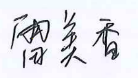 周美香